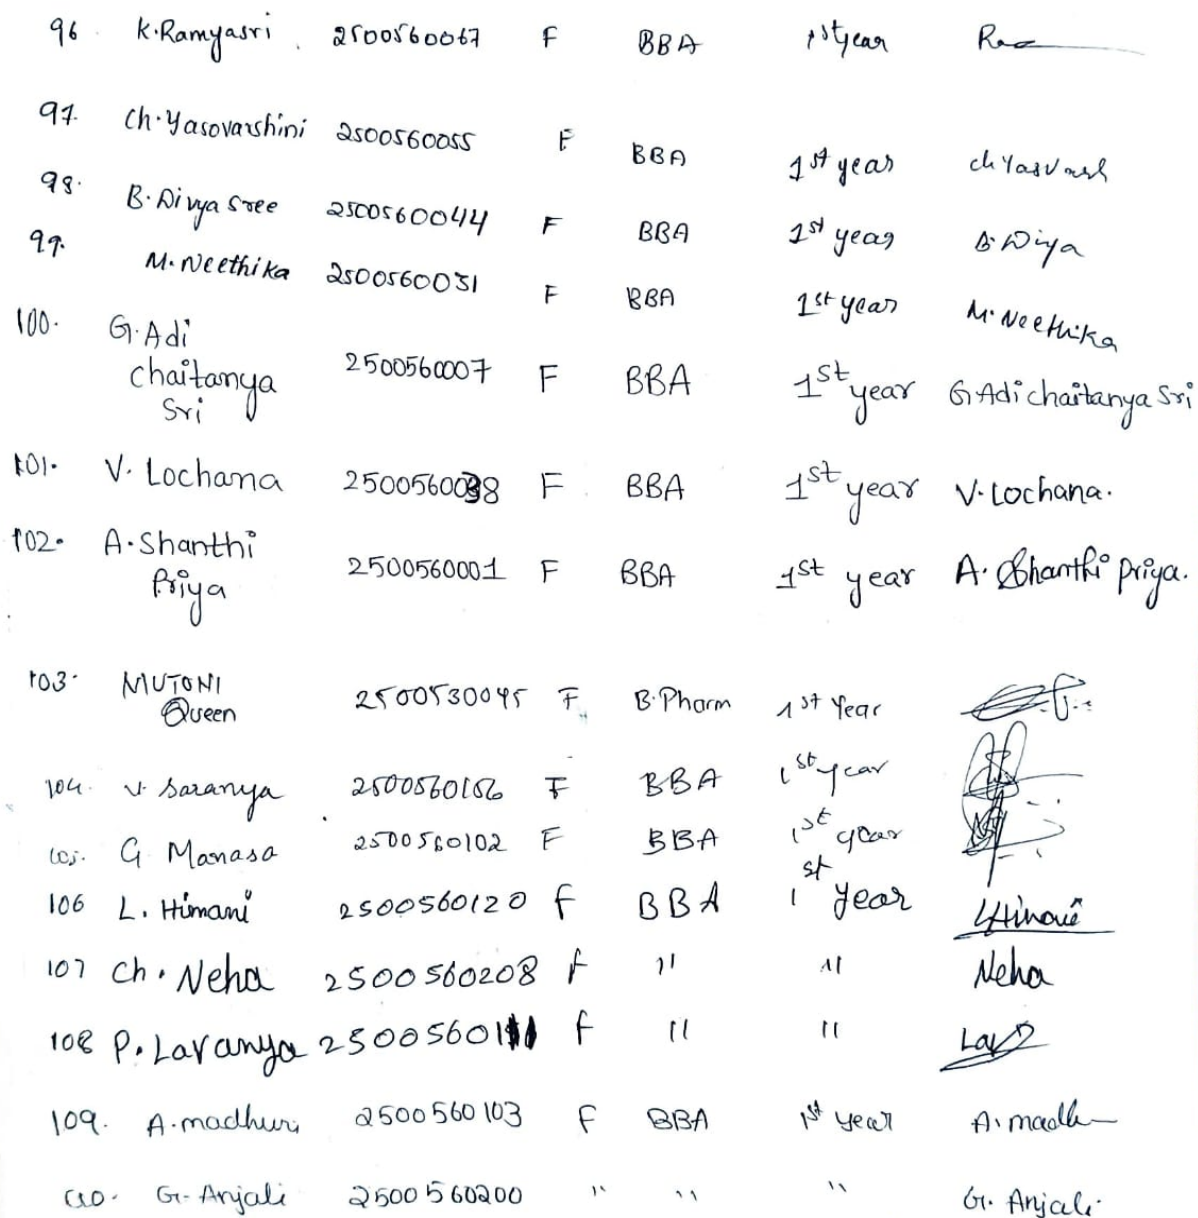 96. K.Ramyasri 2500560067 F BBA 1st year
97. Ch.Yasovarshini 2500560055 F BBA 1st year Ch Yasvash
98. B.Divya Sree 2500560044 F BBA 1st year B.Divya
99. M.Neethika 2500560031 F BBA 1st year M.Neethika
100. G.Adi
chaitanya 2500560007 F BBA 1st year G Adi chaitanya Sri
Sri
101. V. Lochana 2500560038 F BBA 1st year V.Lochana.
102. A.Shanthi
Priya 2500560001 F BBA 1st year A. Shanthi priya.
103. MUTONI
Queen 2500530045 F B.Pharm 1st Year
104. V. Saranya 2500560156 F BBA 1st year
105. G Manasa 2500560102 F BBA 1st year
106 L. Himani 2500560120 F BBA 1st year LHimani
107 Ch. Neha 2500560208 F " " Neha
108 P. Lavanya F " " Lav
109. A.madhuri 2500560103 F BBA 1st year A.madh
110. G. Anjali 2500560200 " " " G. Anjali